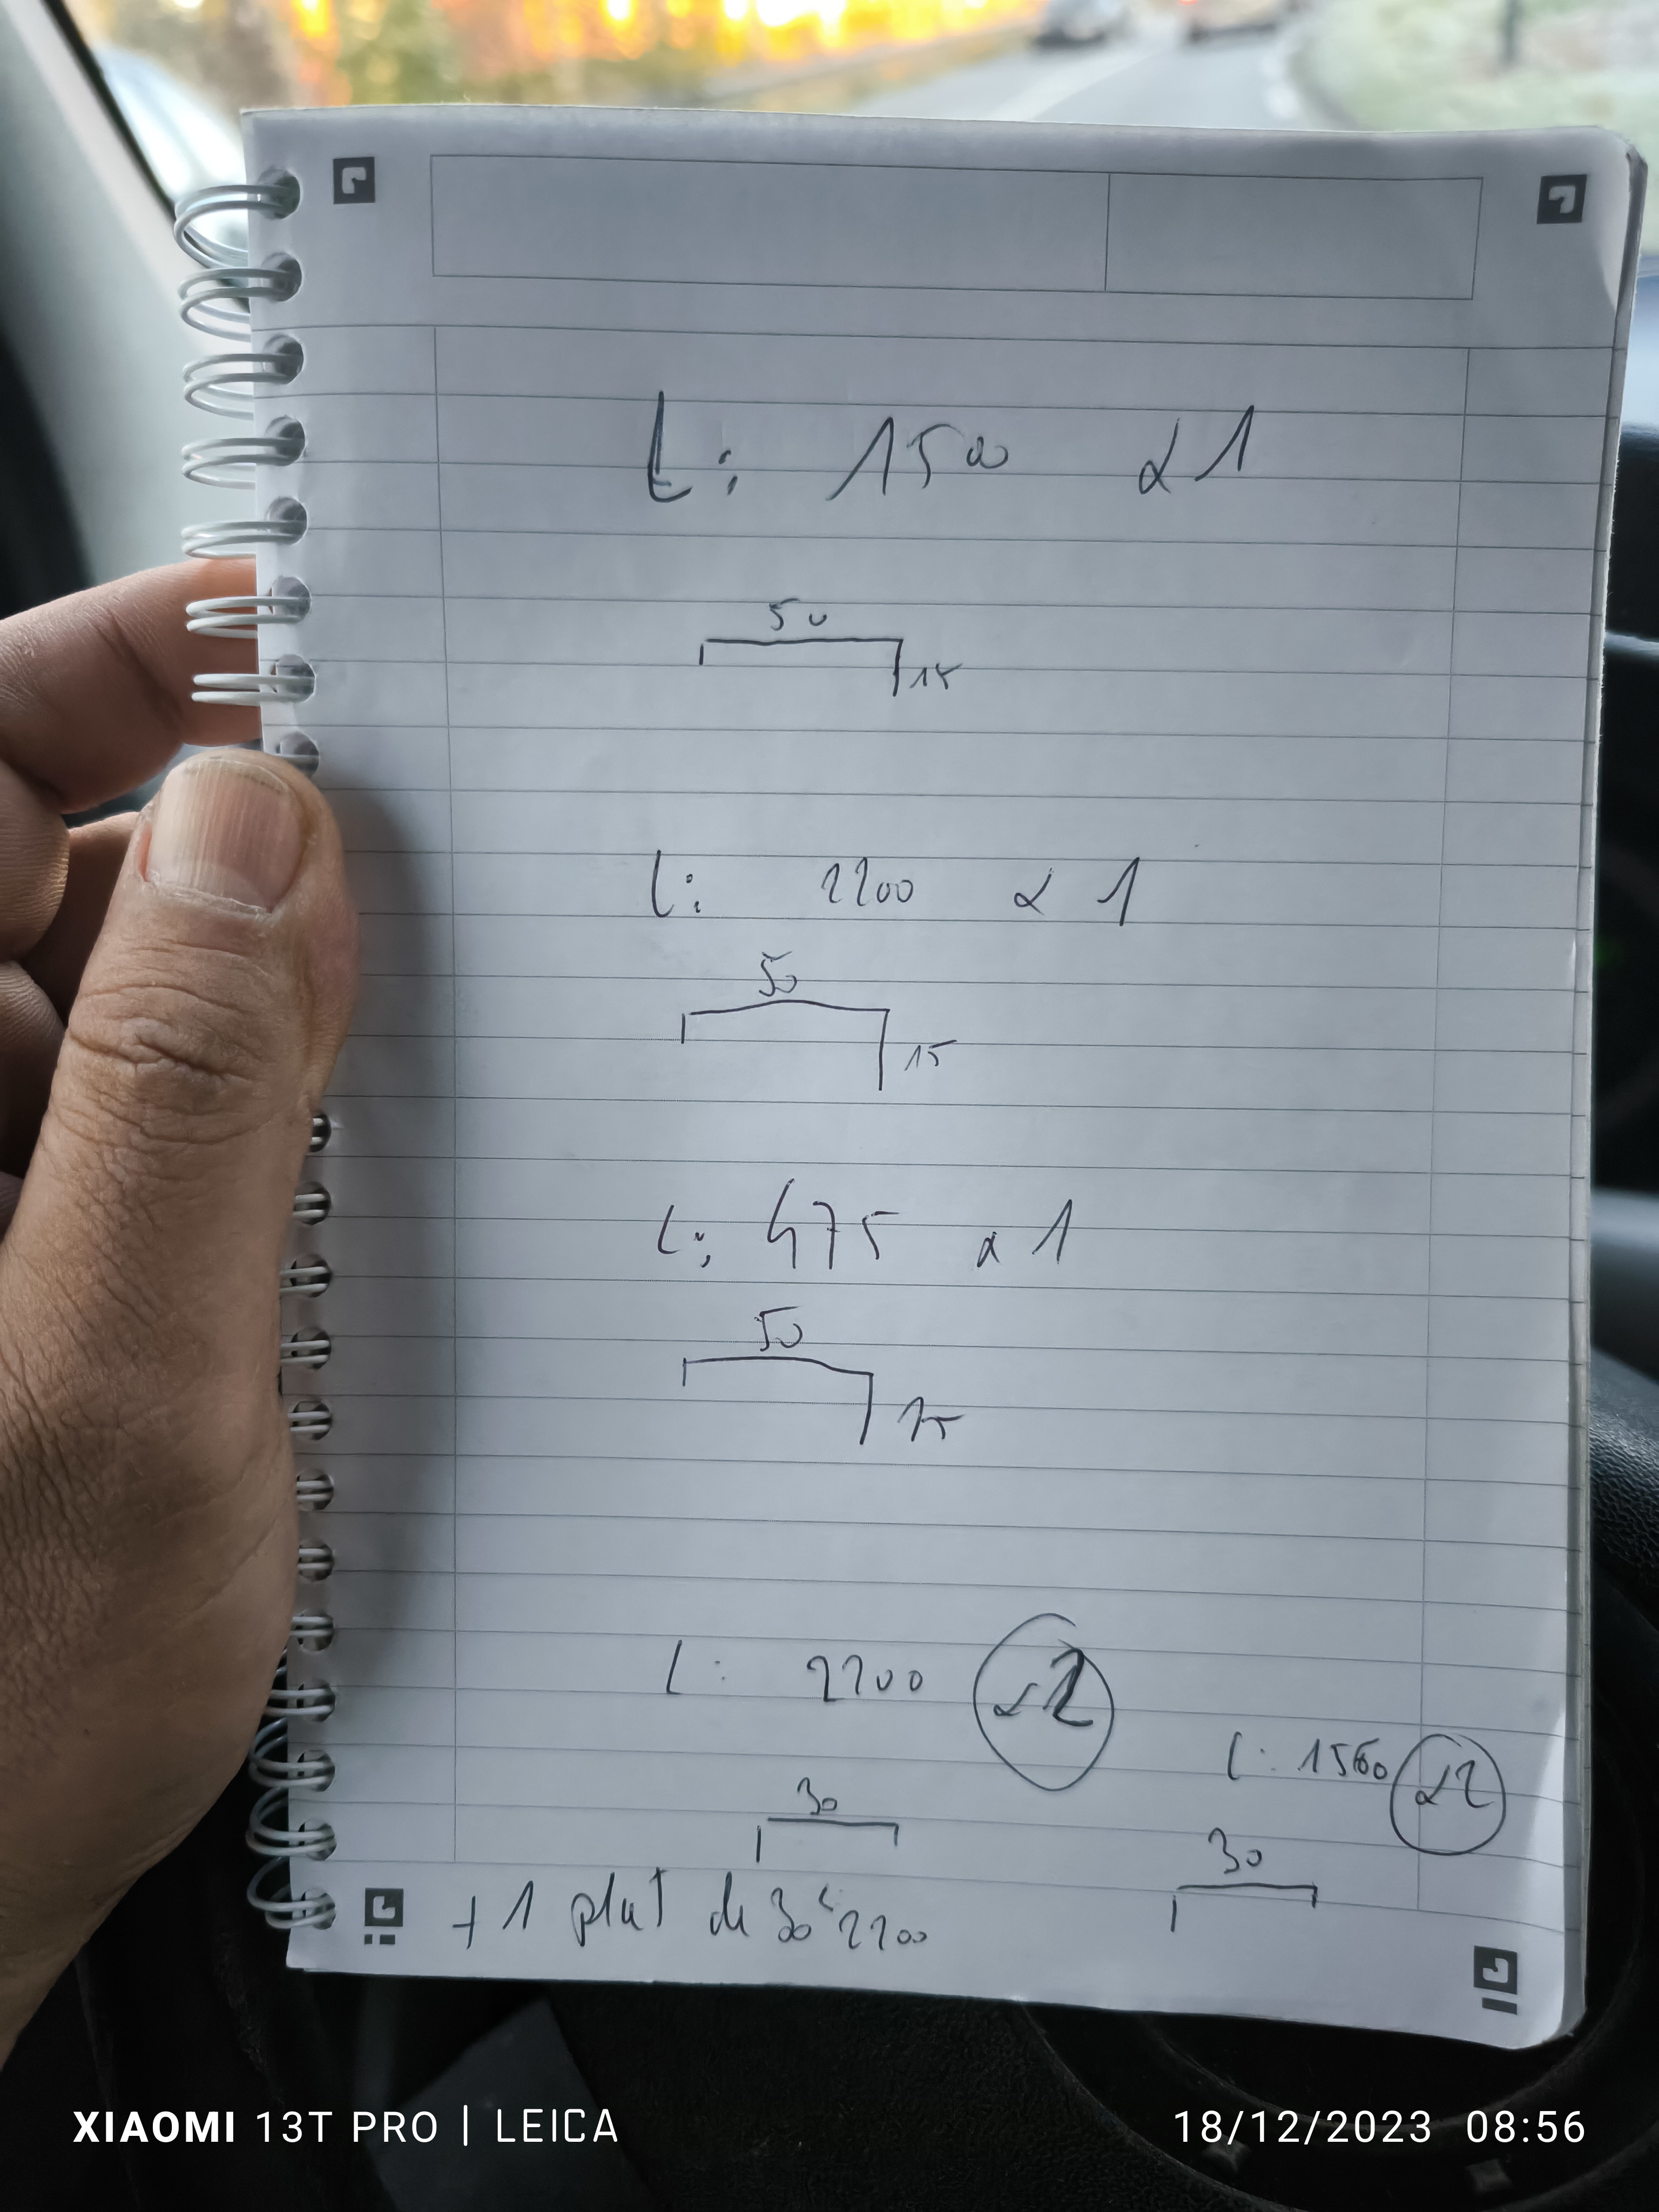 L: 1500 x 1
50
15
L: 2200 x 1
50
15
L: 475 x 1
50
15
L: 2200 x 2
L: 1560 x 2
30
30
+ 1 plat de 30 L 2200
XIAOMI 13T PRO | LEICA
18/12/2023 08:56